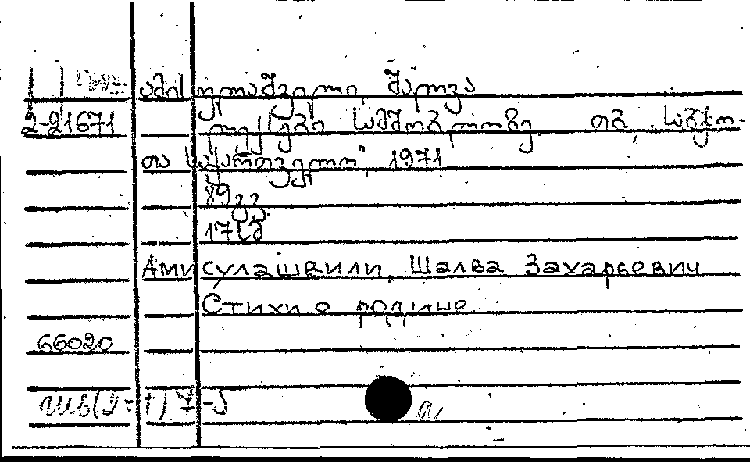 ამისულაშვილი, შალვა
2-21671
ლექსები სამშობლოზე. თბ., „საბჭო-
თა საქართველო“, 1971
89გვ.
17სმ
Амисулашвили, Шалва Захарьевич
Стихи о родине
66020